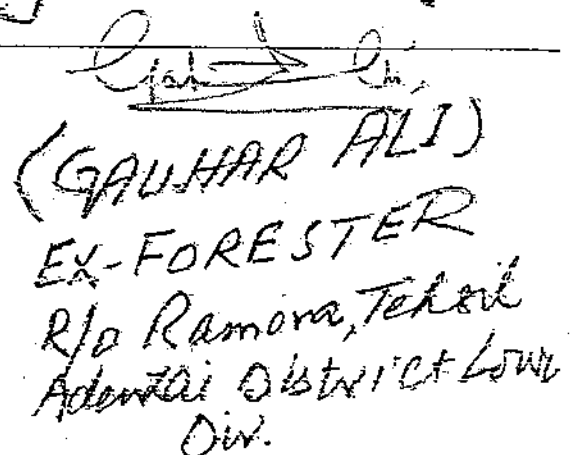 (GAUHAR ALI)
EX-FORESTER
R/o Ramora, Tehsil
Adenzai District Lower
Dir.